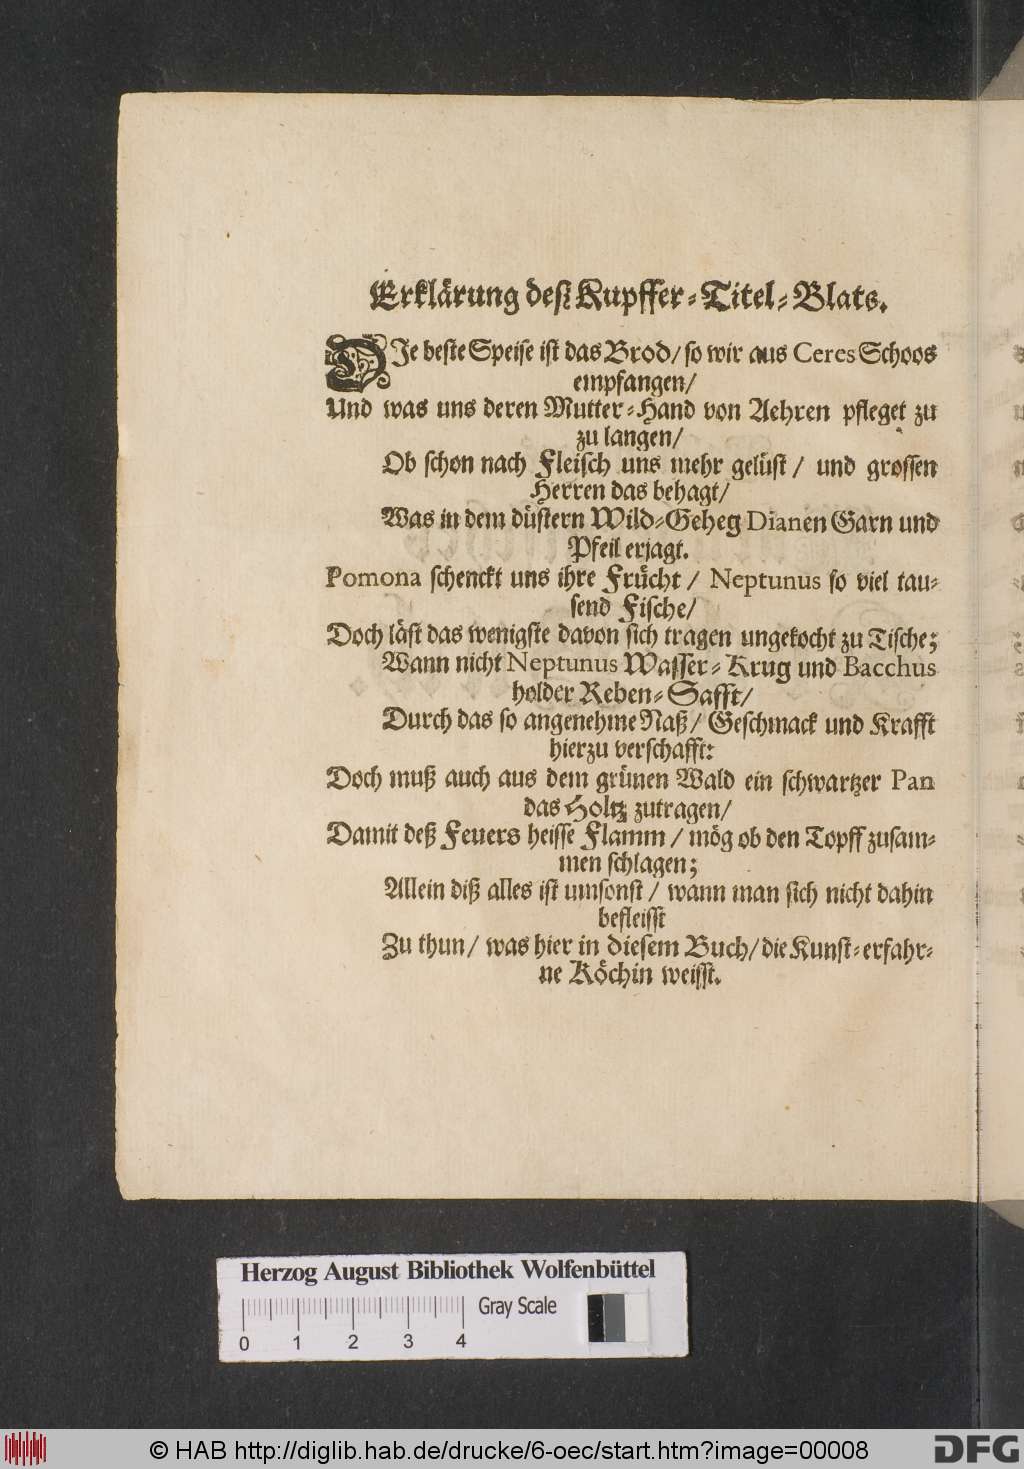 Erklärung deß Kupffer-Titel-Blats.
DJe beste Speise ist das Brod/ so wir aus Ceres Schoos
empfangen/
Und was uns deren Mutter-Hand von Aehren pfleget zu
zu langen/
Ob schon nach Fleisch uns mehr gelüst / und grossen
Herren das behagt/
Was in dem düstern Wild-Geheg Dianen Garn und
Pfeil erjagt.
Pomona schenckt uns ihre Frücht / Neptunus so viel tau-
send Fische/
Doch läst das wenigste davon sich tragen ungekocht zu Tische;
Wann nicht Neptunus Wasser-Krug und Bacchus
holder Reben-Safft/
Durch das so angenehme Naß/ Geschmack und Krafft
hierzu verschafft:
Doch muß auch aus dem grünen Wald ein schwartzer Pan
das Holtz zutragen/
Damit deß Feuers heisse Flamm / mög ob den Topff zusam-
men schlagen;
Allein diß alles ist umsonst / wann man sich nicht dahin
befleisst
Zu thun/ was hier in diesem Buch/ die Kunst-erfahr-
ne Köchin weisst.
Herzog August Bibliothek Wolfenbüttel
Gray Scale
0 1 2 3 4
© HAB http://diglib.hab.de/drucke/6-oec/start.htm?image=00008
DFG